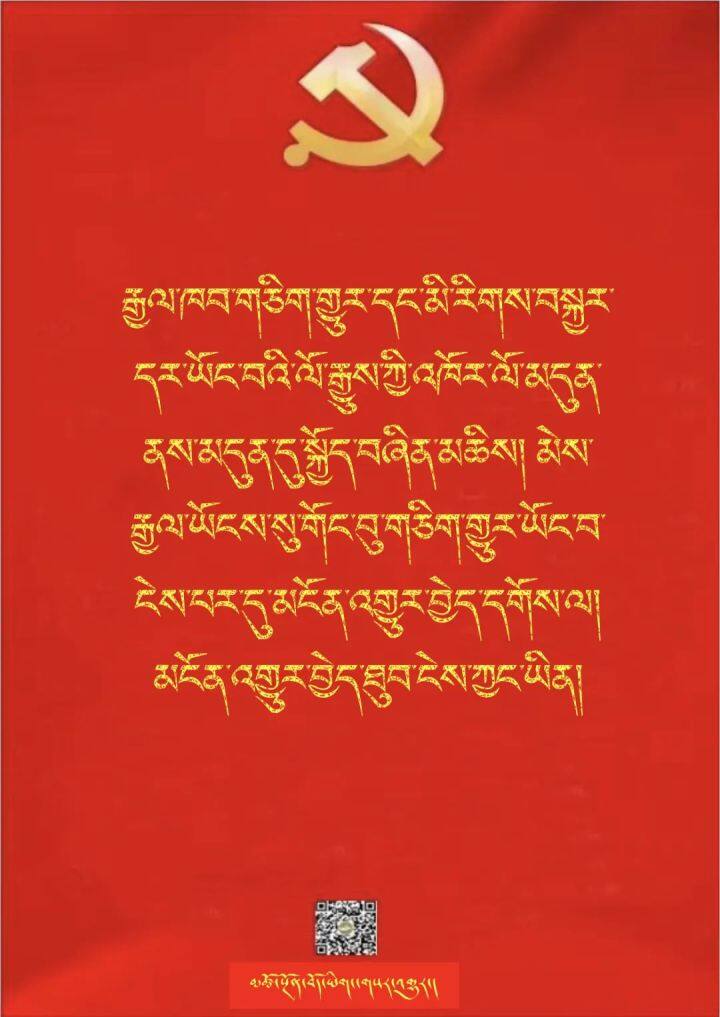 རྒྱལ་ཁབ་གཅིག་གྱུར་དང་མི་རིགས་བསྐྱར་
དར་ཡོང་བའི་ལོ་རྒྱུས་ཀྱི་འཁོར་ལོ་མདུན་
ནས་མདུན་དུ་སྐྱོད་བཞིན་མཆིས། མེས་
རྒྱལ་ཡོངས་སུ་གོང་བུ་གཅིག་གྱུར་ཡོང་བ་
ངེས་པར་དུ་མངོན་འགྱུར་བྱེད་དགོས་ལ།
མངོན་འགྱུར་བྱེད་ཐུབ་ངེས་ཀྱང་ཡིན།